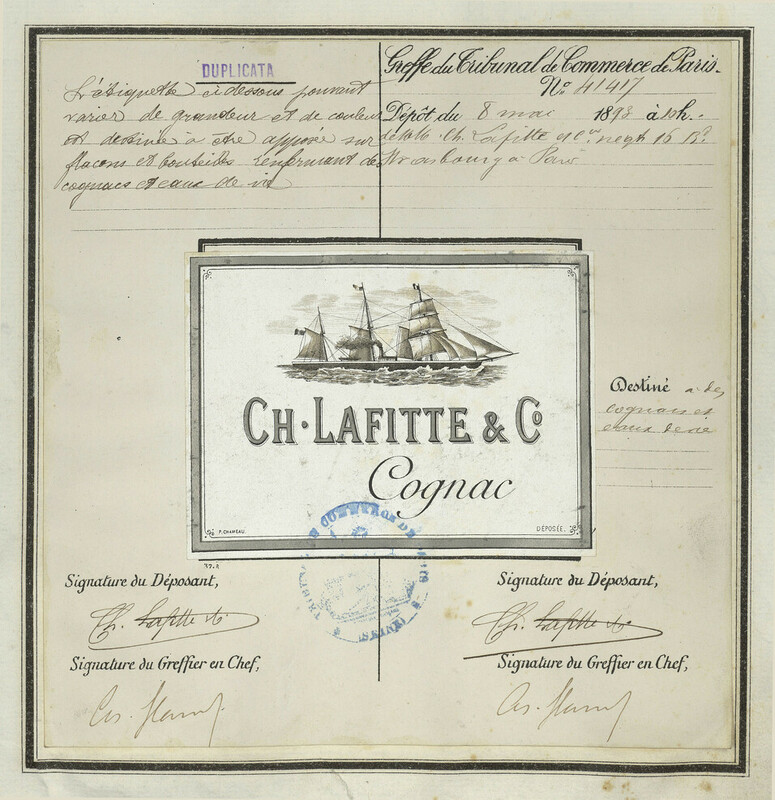 DUPLICATA
L'étiquette ci dessous pouvant
varier de grandeur et de couleur
est destinée à être apposée sur
flacons et bouteilles renfermant des
cognacs et eaux de vie
Greffe du Tribunal de Commerce de Paris.
No. 41417
Dépôt du 8 mai 1893 à 10h.
Ch. Lafitte et Cie negts 16 Bd
Strasbourg à Paris
CH. LAFITTE & Co
Cognac
P. CHAMEAU.
DÉPOSÉE.
Destiné à des
cognacs et
eaux de vie
37.A
TRIBUNAL DE COMMERCE DE PARIS
(SEINE)
Signature du Déposant,
Ch. Lafitte & Co
Signature du Greffier en Chef,
Signature du Déposant,
Ch. Lafitte & Co
Signature du Greffier en Chef,